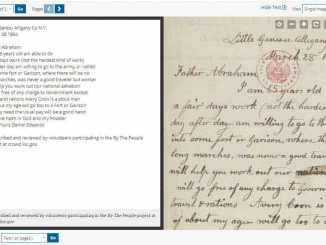 Pages
Go
Hide Text
View
Single Image
Genesee Allgany Co N.Y.
28 1864
Abraham
years old am able to do
days work (not the hardest kind of work)
day am willing to go to the army, or rather
some fort or Garison, where there will be no
marches, was never a good traveler but would
help you work out our national salvation
free of any charge to Government except
and rations Avery Coon is a stout man
my age will go too to A Fort or Garison
the usual pay will be a good hand
harm in God and my Powder
Yours Daniel Edwards
and reviewed by volunteers participating in the By The People
at crowd.loc.gov.
and reviewed by volunteers participating in the By The People project at
Go
Little Genesee Allegany
March 28
Father Abraham
I am 65 years old
a fair days work (not the hardest
day after day. am willing to go to th
into some fort or Garison, where th
long marches, was never a good trav
will help you work out our nation
will go free of any charge to Governm
Avery Coon is
of about my age will go too to